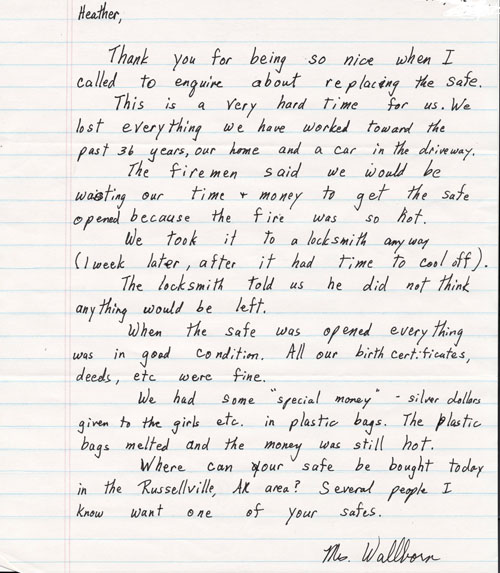 Heather,
Thank you for being so nice when I
called to enquire about replacing the safe.
This is a very hard time for us. We
lost everything we have worked toward the
past 36 years, our home and a car in the driveway.
The firemen said we would be
wasting our time + money to get the safe
opened because the fire was so hot.
We took it to a locksmith anyway
(1 week later, after it had time to cool off).
The locksmith told us he did not think
anything would be left.
When the safe was opened everything
was in good condition. All our birth certificates,
deeds, etc were fine.
We had some "special money" - silver dollars
given to the girls etc. in plastic bags. The plastic
bags melted and the money was still hot.
Where can your safe be bought today
in the Russellville, AR area? Several people I
know want one of your safes.
Ms. Wallborn